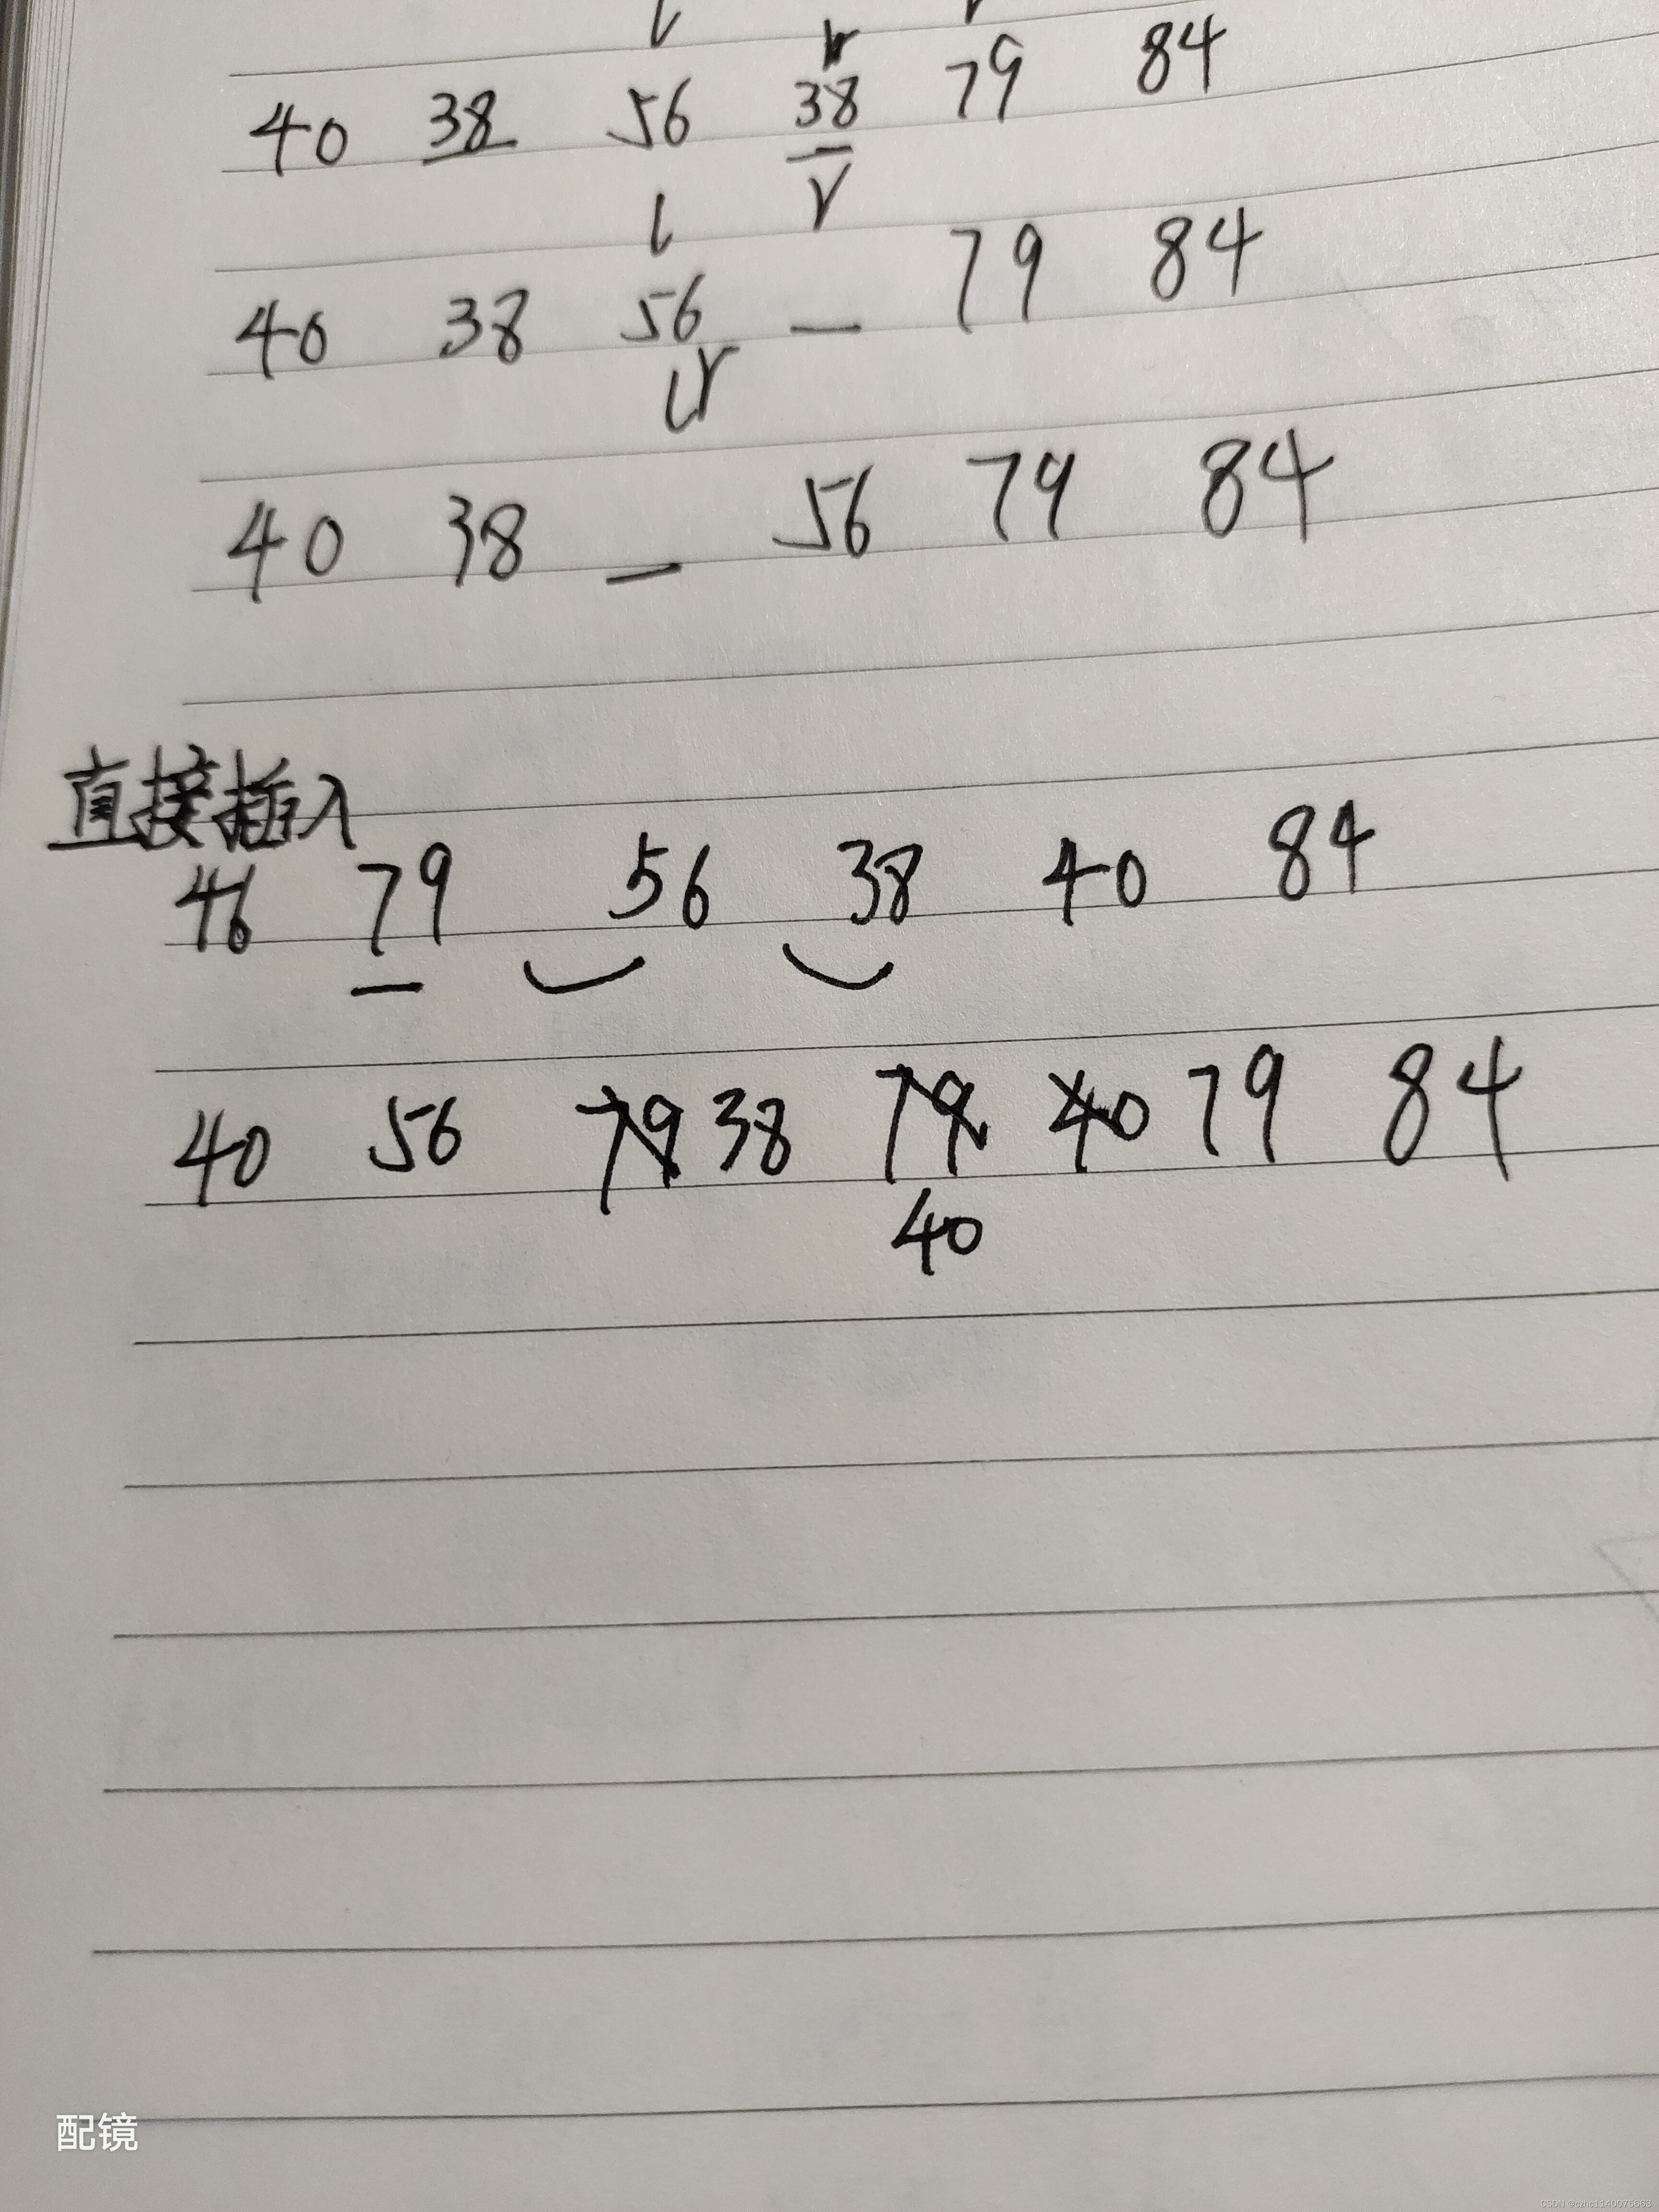 l
r
40 38 56 38 79 84
l r
40 38 56 — 79 84
l r
40 38 — 56 79 84
直接插入
46 79 56 38 40 84
40 56 79 38 79 40 79 84
40
配镜